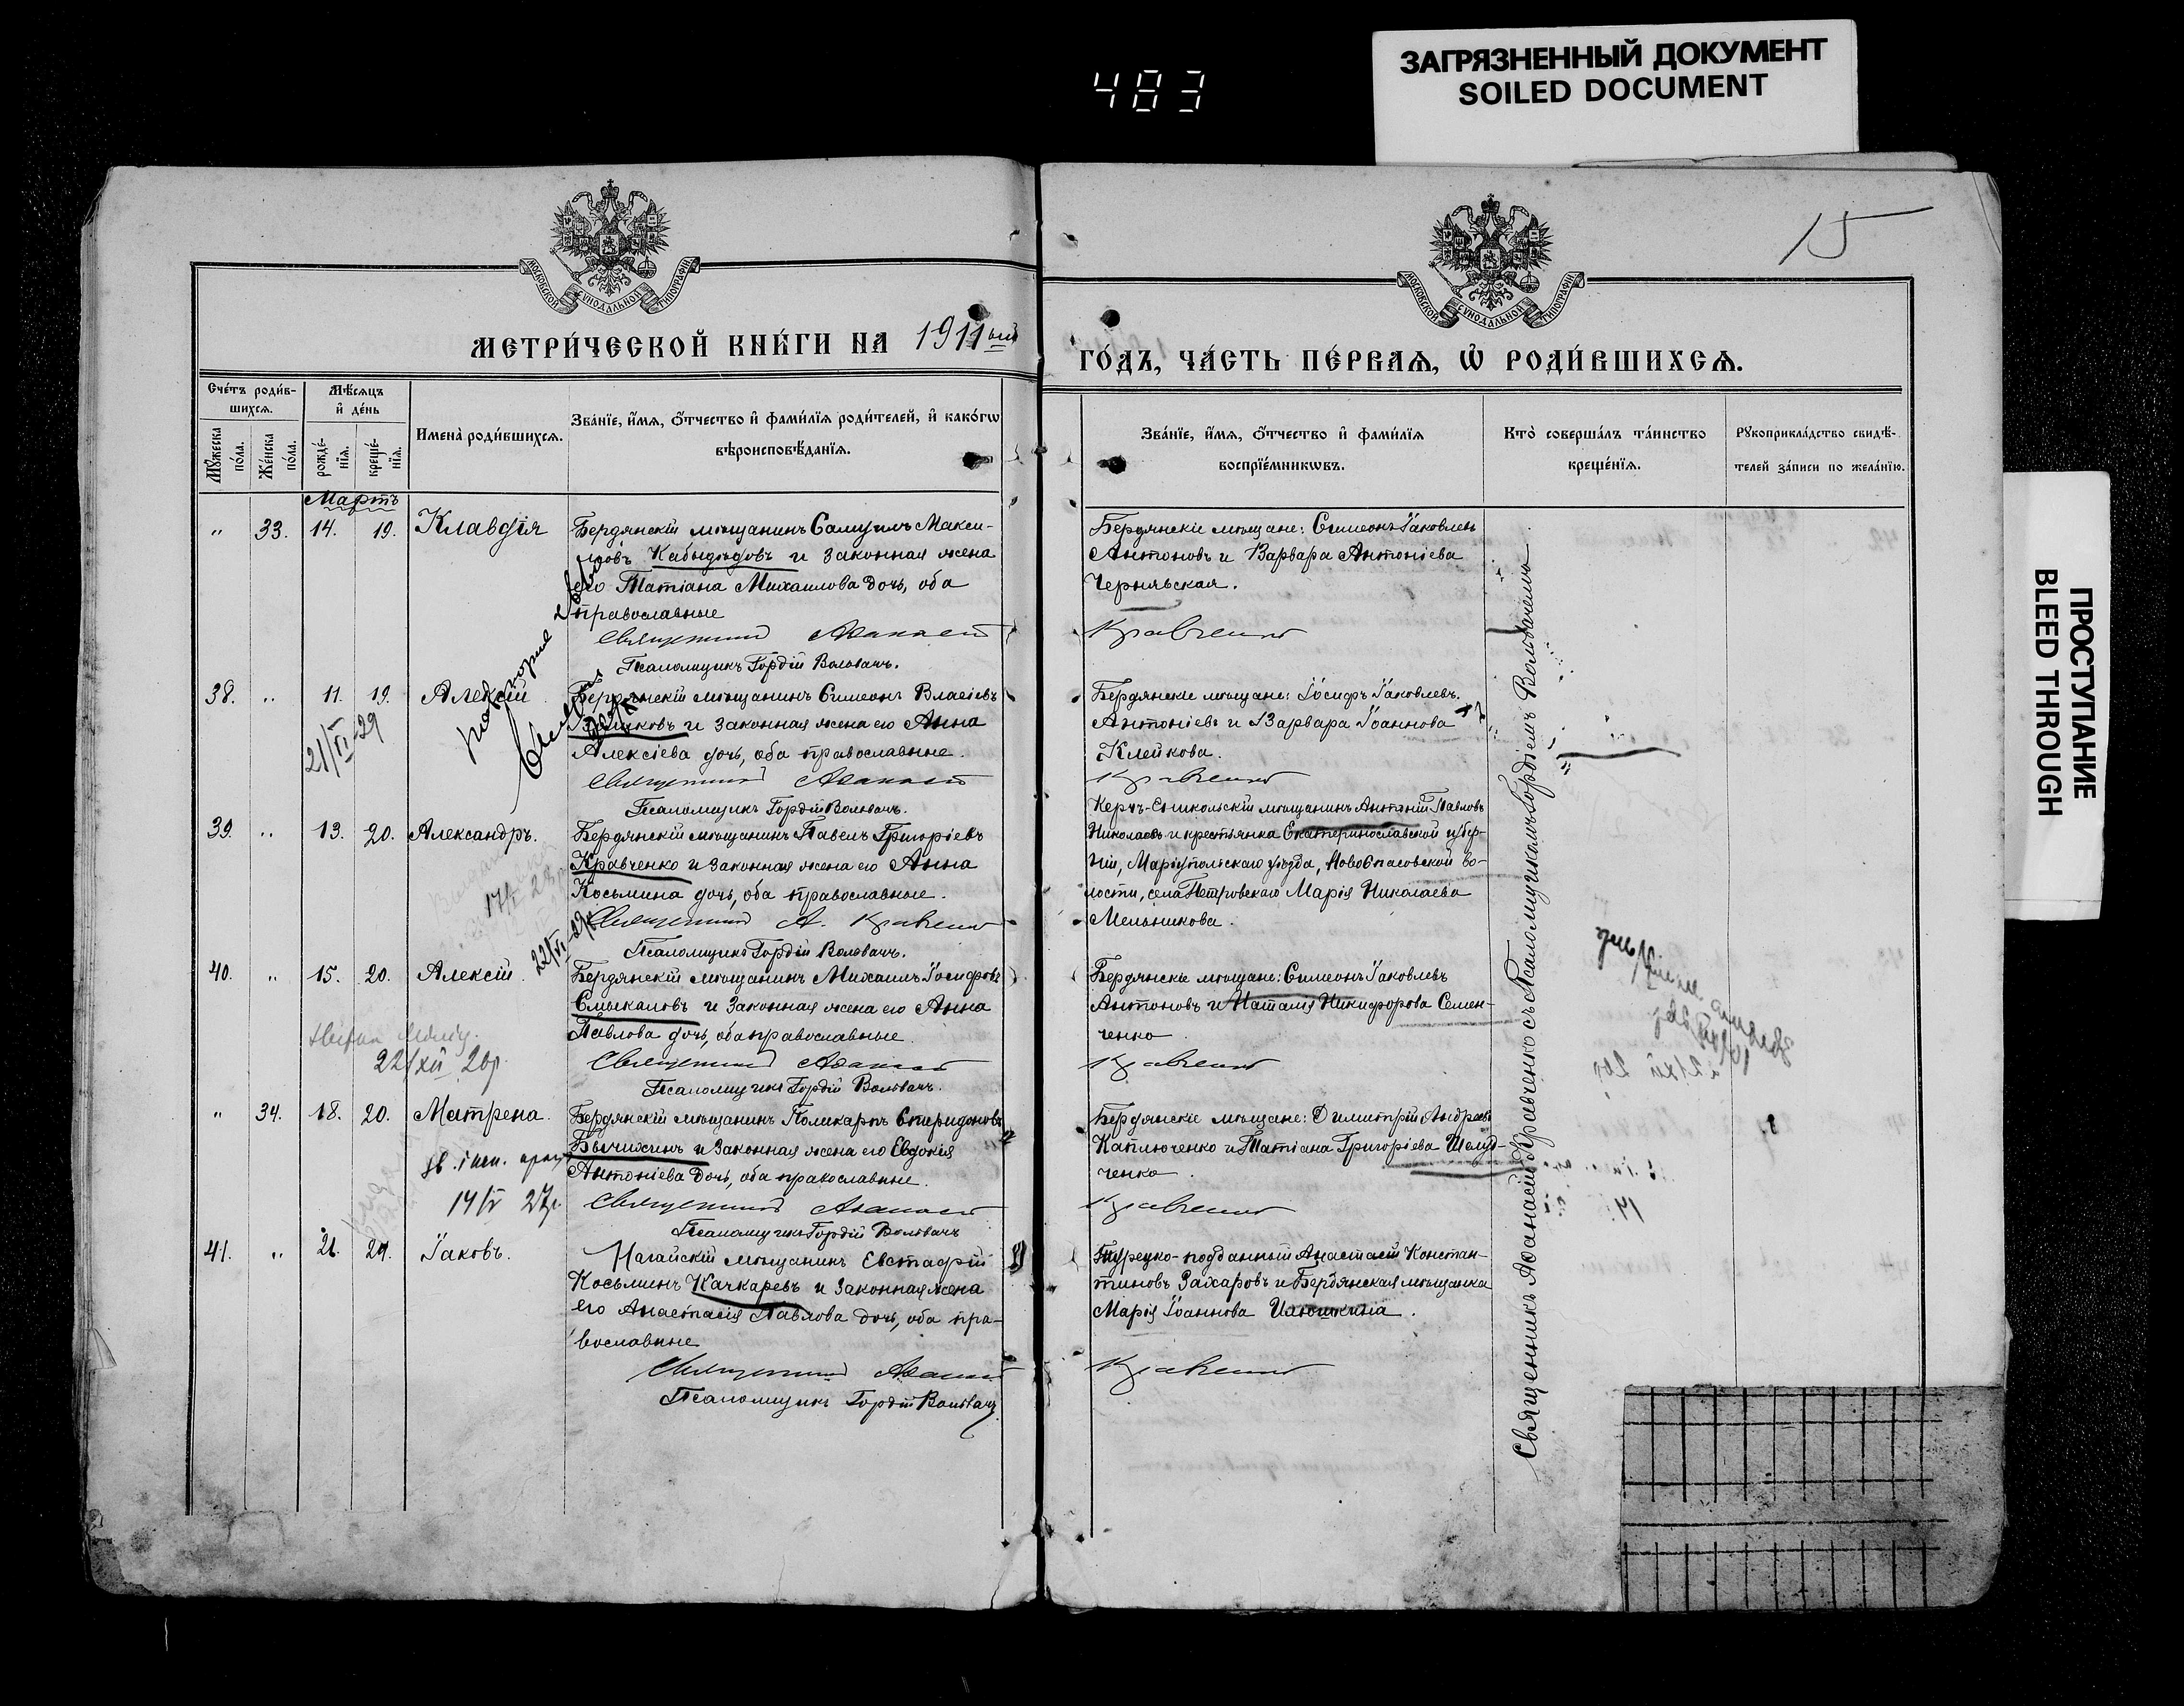 483
ЗАГРЯЗНЕННЫЙ ДОКУМЕНТ
SOILED DOCUMENT
ПРОСТУПАНИЕ
BLEED THROUGH
15
МОСКОВСКОЙ СУНОДАЛЬНОЙ ТИПОГРАФІИ
МОСКОВСКОЙ СУНОДАЛЬНОЙ ТИПОГРАФІИ
МЕТРИ́ЧЕСКОЙ КНИ́ГИ НА 1911ый
ГО́ДЪ, ЧА́СТЬ ПЕ́РВАѦ, Ѡ҆ РОДИ́ВШИХСѦ.
Сче́тъ роди́в-
шихсѧ.
Мꙋ́жеска по́ла.
Же́нска по́ла.
Мѣ́сѧцъ
и҆ де́нь
рожде́-
нїѧ.
креще́-
нїѧ.
И҆мена̀ роди́вшихсѧ.
Зва́нїе, и҆́мѧ, ѻ҆́тчество и҆ фами́лїѧ роди́телей, и҆ како́гѡ
вѣроисповѣ́данїѧ.
Зва́нїе, и҆́мѧ, ѻ҆́тчество и҆ фами́лїѧ
воспрїе́мникѡвъ.
Кто̀ соверша́лъ та́инство
креще́нїѧ.
Рꙋкоприкла́дство свидѣ́-
телей за́писи по жела́нїю.
Мартъ
" 33. 14. 19. Клавдія
Бердянскій мѣщанинъ Самуилъ Макси-
мовъ Кабыдѣдовъ и законная жена
его Татіана Михаилова дочь, оба
православные
Священникъ Аѳанасій
Кравченко
Псаломщикъ Гордій Воловачъ.
Бердянскіе мѣщане: Симеонъ Іаковлевъ
Антоновъ и Варвара Антоніева
Черняьская.
38. " 11. 19. Алексій
Бердянскій мѣщанинъ Симеонъ Власіевъ
и законная жена его Анна
Алексіева дочь, оба православные.
Священникъ Аѳанасій
Кравченко
Псаломщикъ Гордій Воловачъ.
Бердянскіе мѣщане: Іосифъ Іаковлевъ
Антоніевъ и Варвара Іоаннова
Клейкова.
21/VI-29
39. " 13. 20. Александръ.
Бердянскій мѣщанинъ Павелъ Григоріевъ
Кравченко и законная жена его Анна
Косьмина дочь, оба православные.
Священникъ А. Кравченко
Псаломщикъ Гордій Воловачъ.
Керчь-Еникольскій мѣщанинъ Антоній Павловъ
Николаевъ и крестьянка Екатеринославской губер-
ніи, Маріупольскаго уѣзда, Новоспасовской во-
лости, села Петровскаго Марія Николаева
Мельникова.
40. " 15. 20. Алексій.
Бердянскій мѣщанинъ Михаилъ Іосифовъ
Смыкаловъ и законная жена его Анна
Павлова дочь, оба православные.
Священникъ Аѳанасій
Кравченко
Псаломщикъ Гордій Воловачъ.
Бердянскіе мѣщане: Симеонъ Іаковлевъ
Антоновъ и Наталія Никифорова Семен-
ченко
22/XII 20г.
" 34. 18. 20. Матрена.
Бердянскій мѣщанинъ Поликарпъ Спиридоновъ
Бычихинъ и законная жена его Евдокія
Антоніева дочь, оба православные.
Священникъ Аѳанасій
Кравченко
Псаломщикъ Гордій Воловачъ
Бердянскіе мѣщане: Димитрій Андреевъ
Каплюченко и Татіана Григоріева Шелуд-
ченко
14/V 27г.
41. " 21. 24. Іаковъ.
Ногайскій мѣщанинъ Евстафій
Косьминъ Качкаревъ и законная жена
его Анастасія Павлова дочь, оба пра-
вославные
Священникъ Аѳанасій
Кравченко
Псаломщикъ Гордій Воловачъ
Турецко-подданный Анастасій Констан-
тиновъ Захаровъ и Бердянская мѣщанка
Марія Іоаннова Илюшкина.
Священникъ Аѳанасій Кравченко съ Псаломщикомъ Гордіемъ Воловачемъ